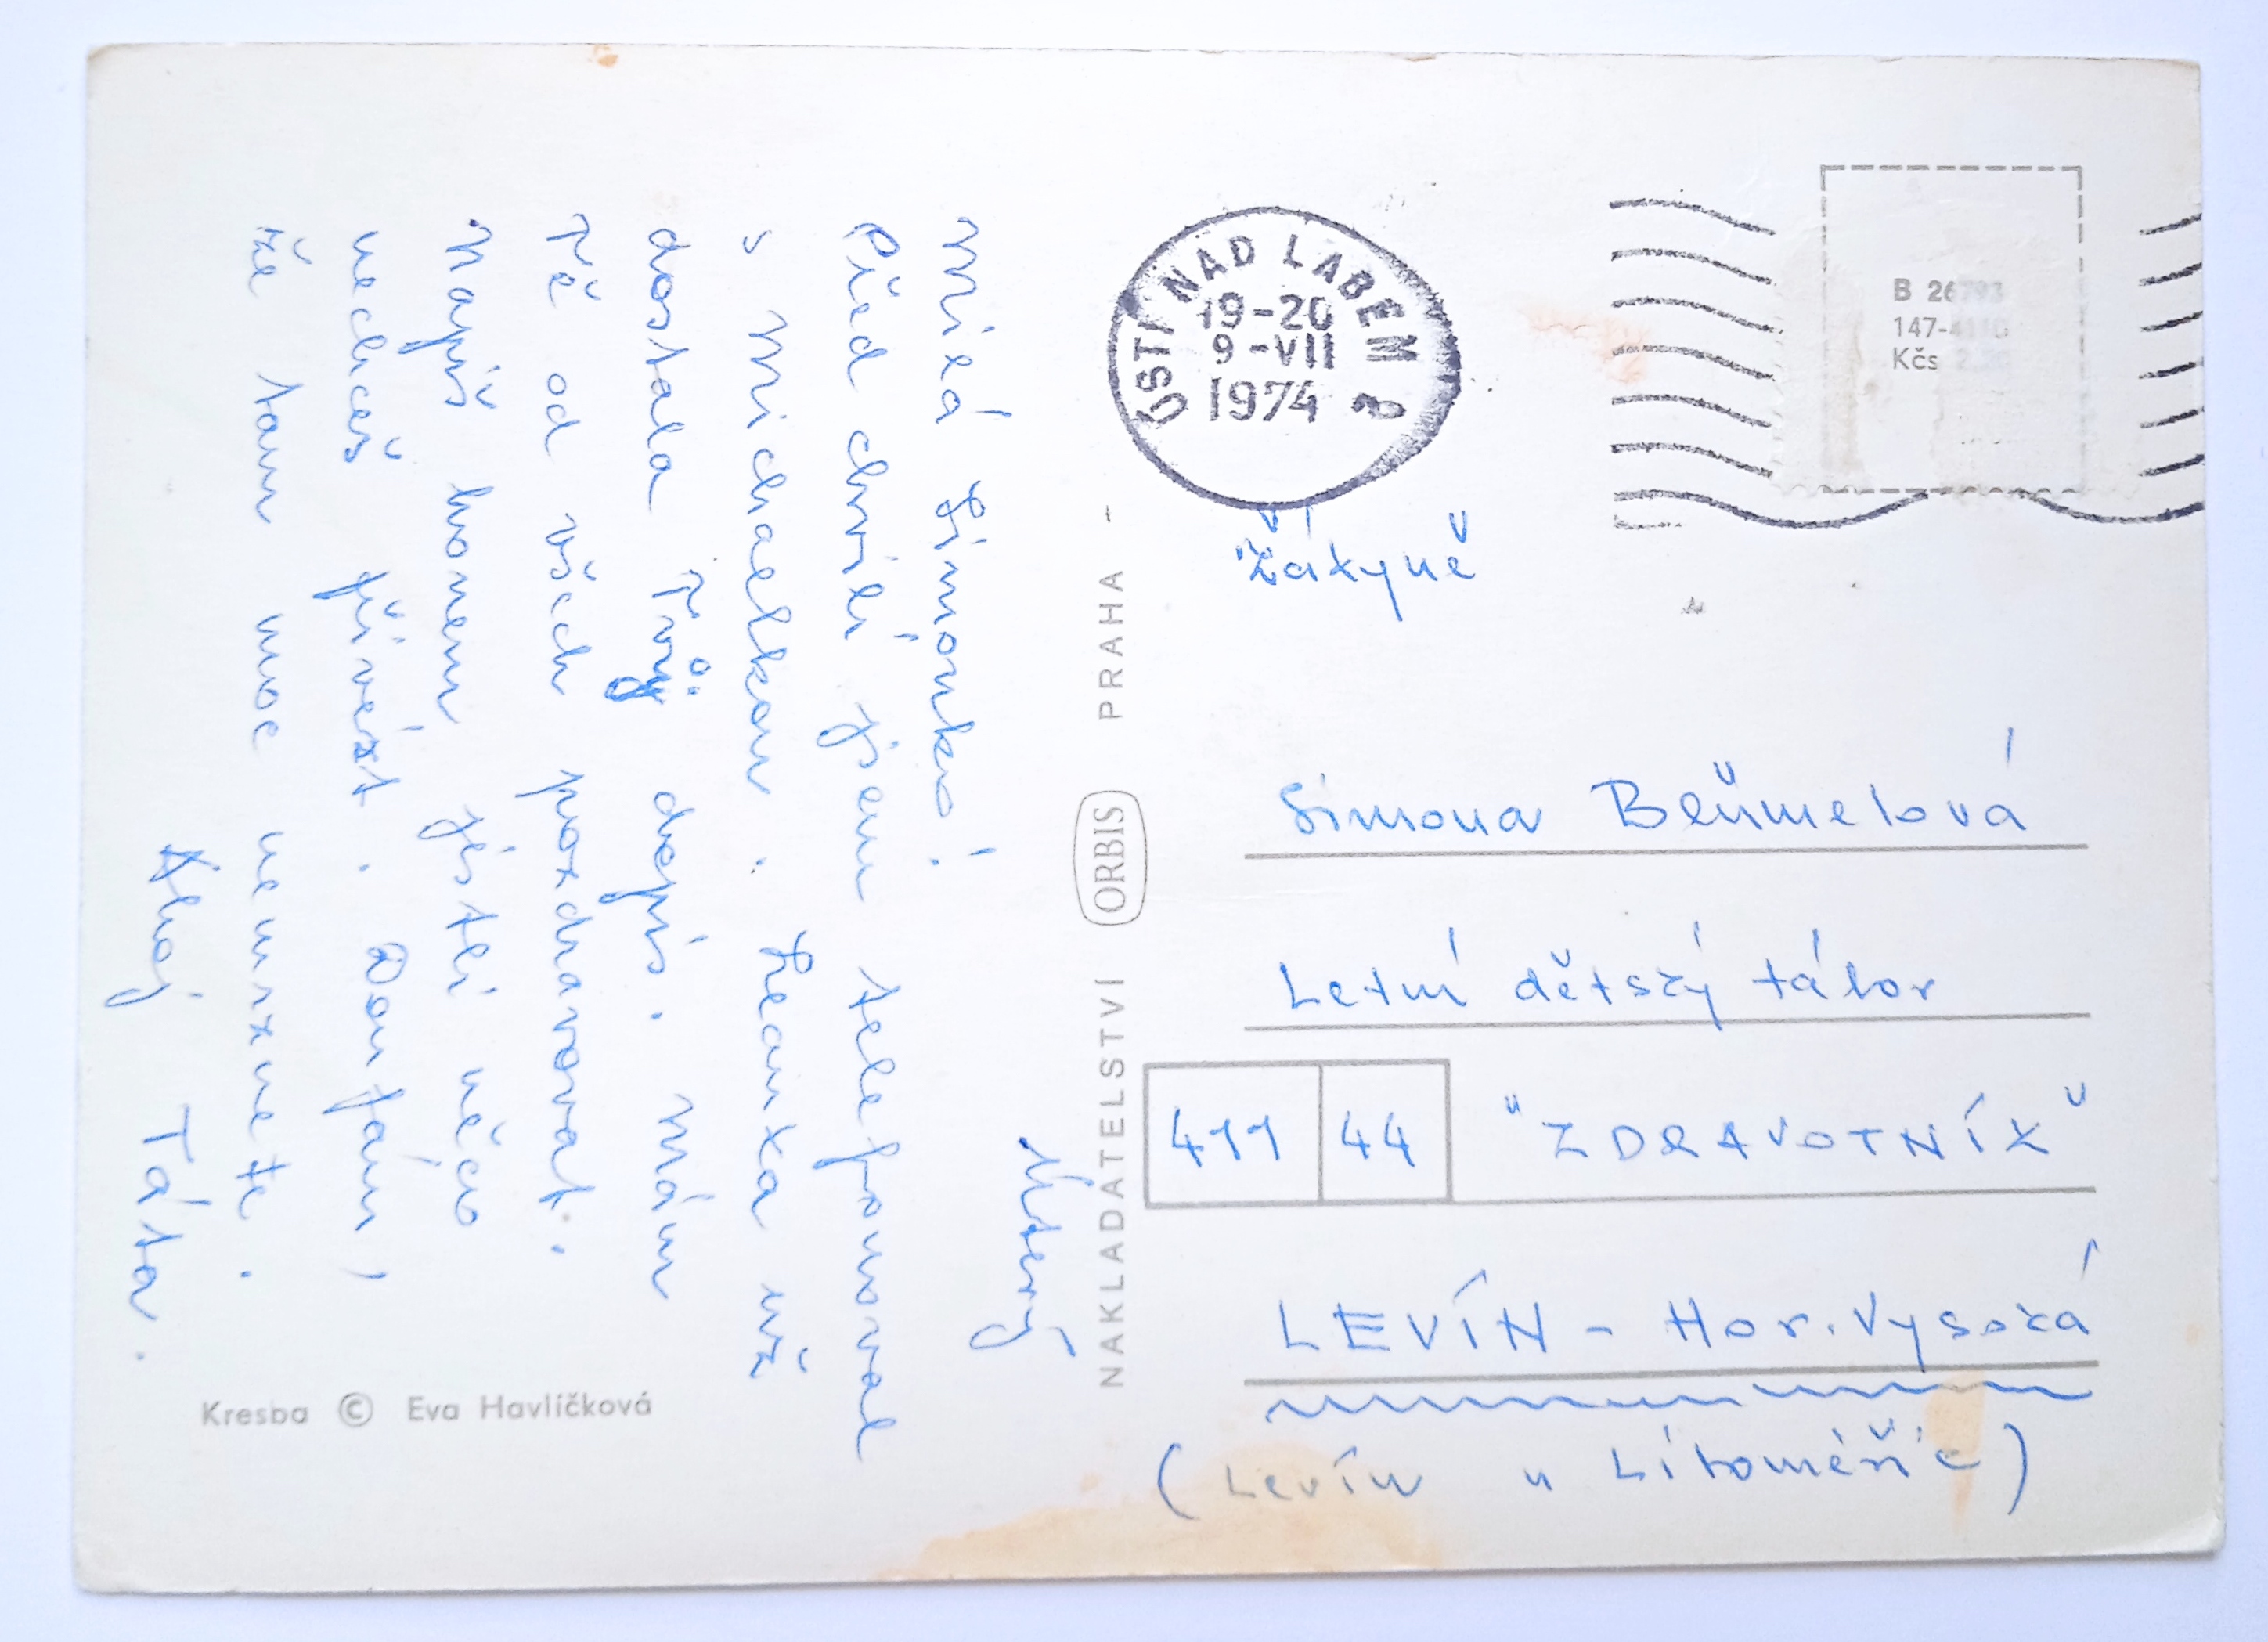 Úterý
Milá Simonko!
Před chvílí jsem telefonoval
s Michaelkou. Leontka už
dostala Tvůj dopis. Mám
Tě od všech pozdravovat.
Napiš honem jestli něco
nechceš přivézt. Doufám,
že tam moc nemrznete.
Ahoj Táta.
Kresba © Eva Havlíčková
NAKLADATELSTVÍ ORBIS PRAHA -
ÚSTÍ NAD LABEM 2
19-20
9-VII
1974
B 26793
147-4110
Kčs
Žákyně
Simona Beňmelová
Letní dětský tábor
411 44 "ZDRAVOTNÍK"
LEVÍN - Hor. Vysoká
(Levín u Litoměřic)